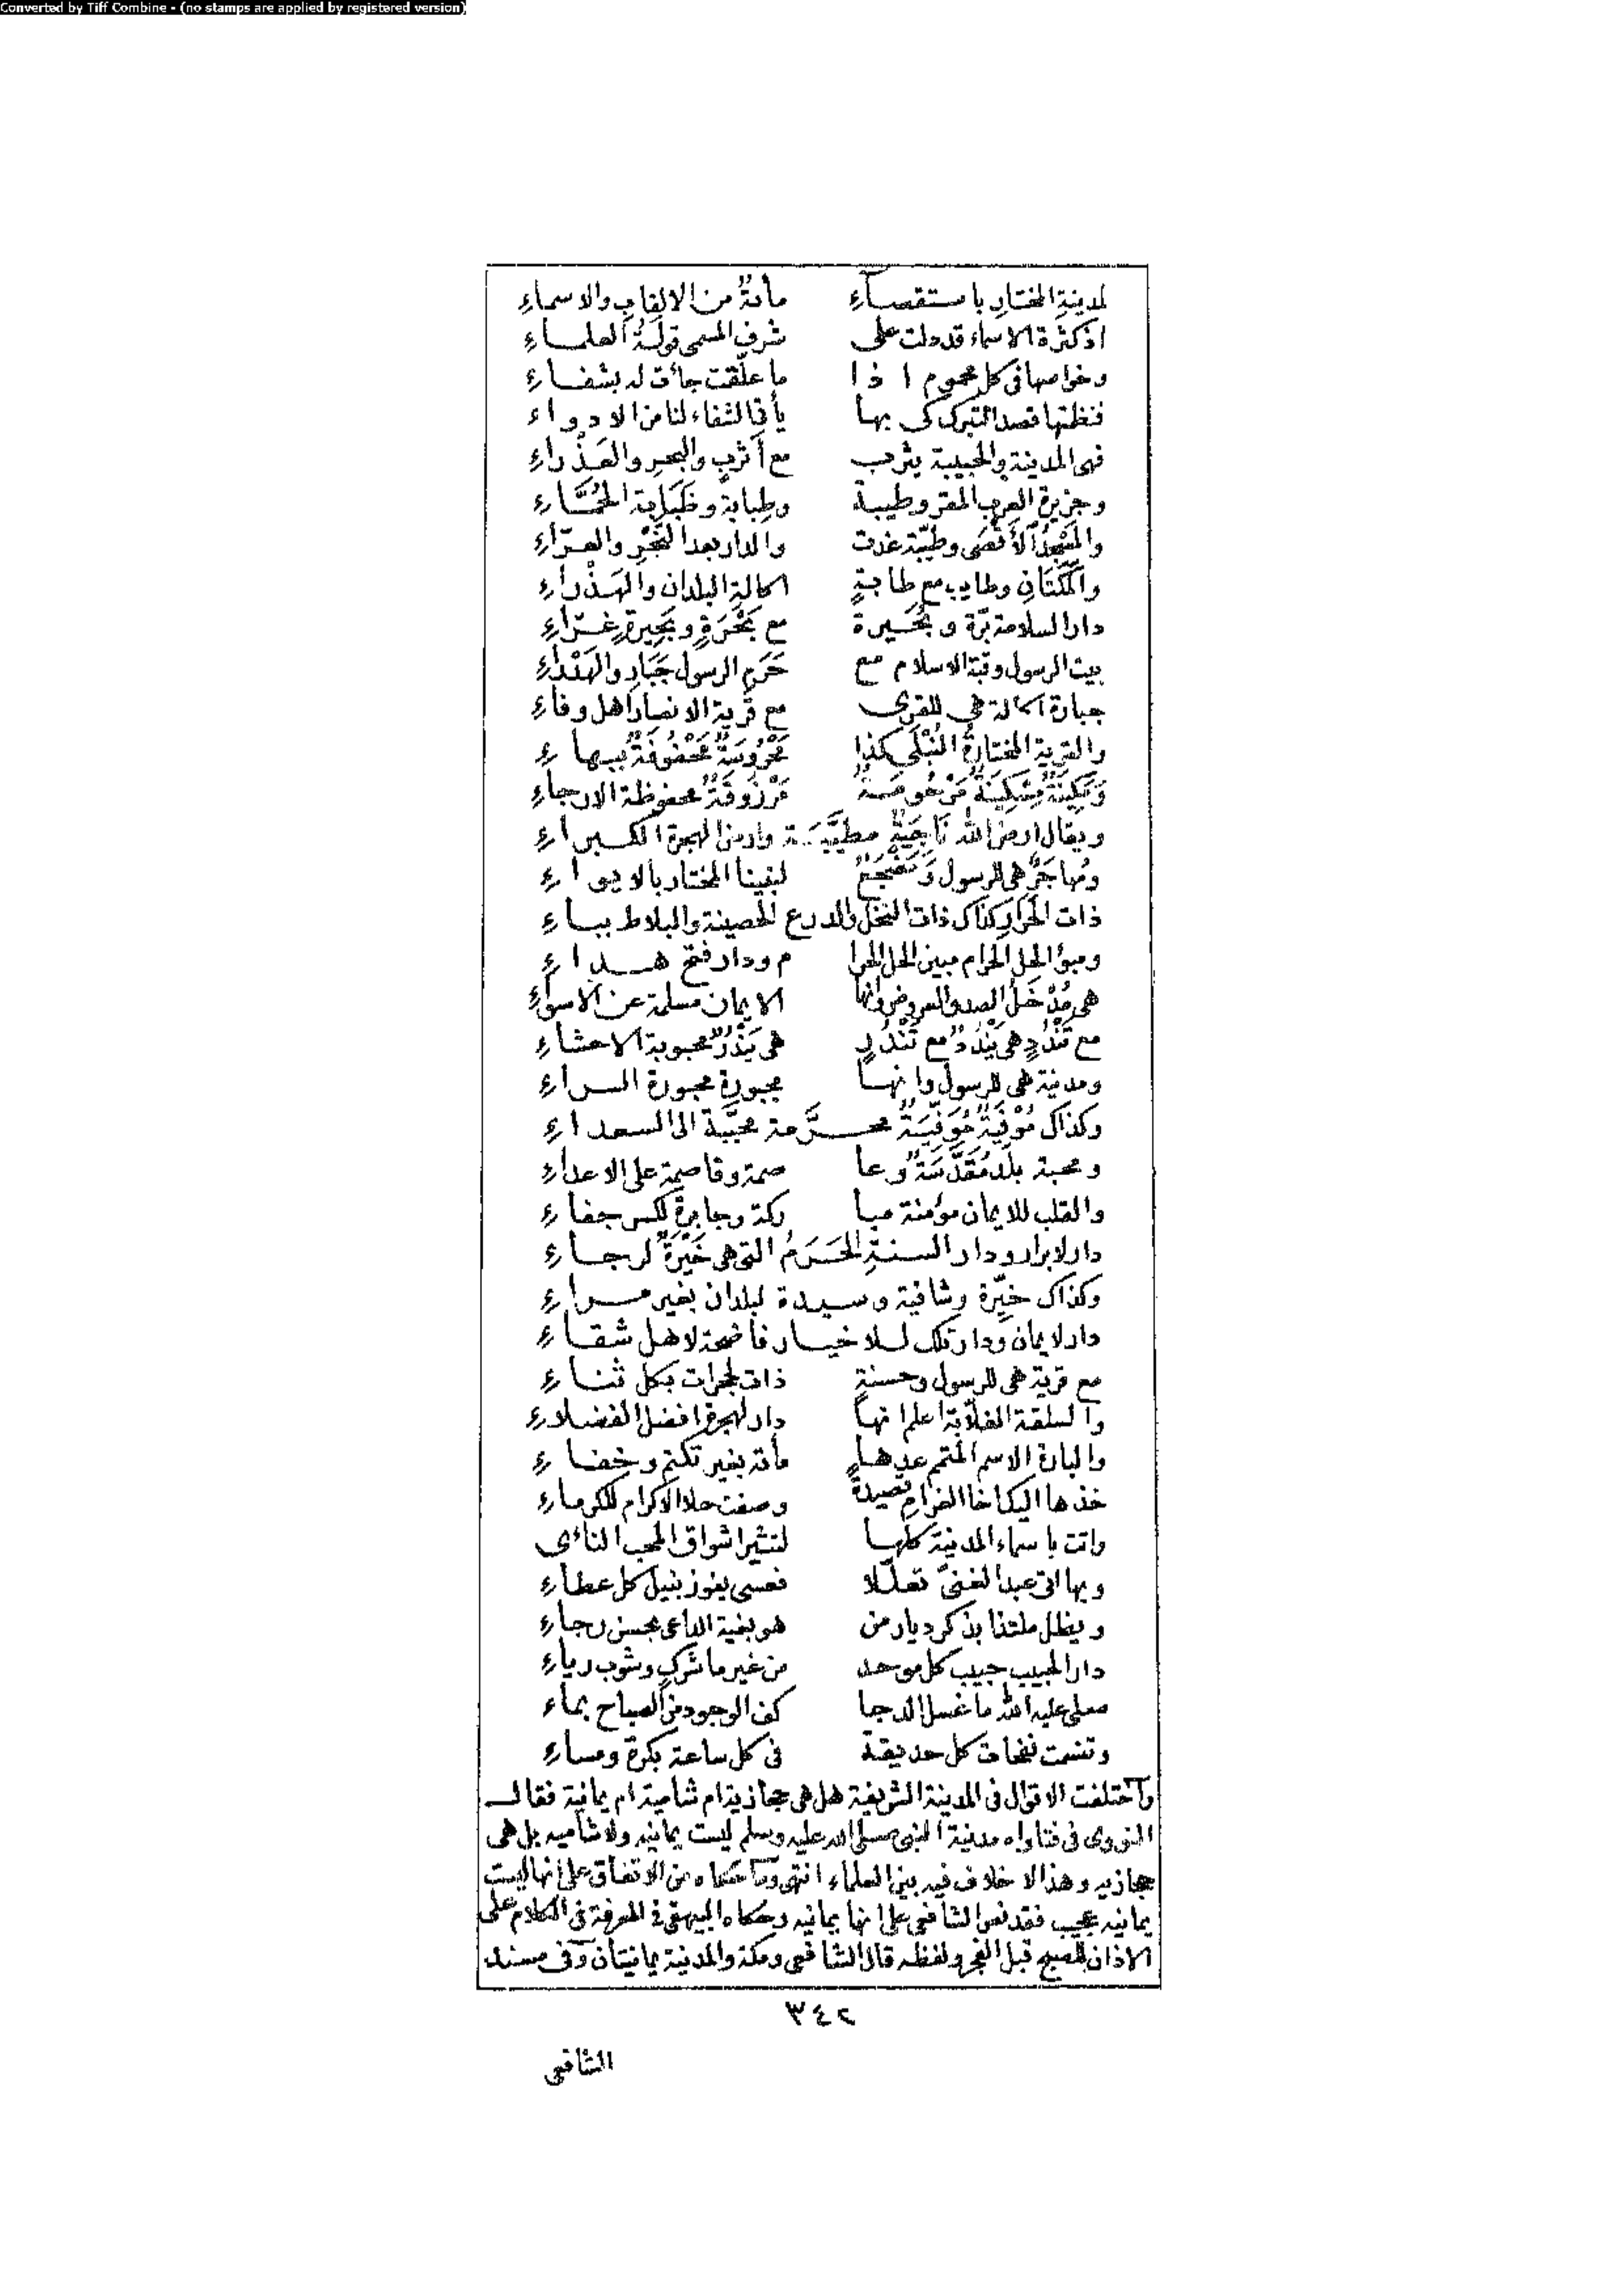 Converted by Tiff Combine - (no stamps are applied by registered version)
لمدينةِ المختارِ باستقصآءِ مأنةٌ من الالقابِ والاسماءِ
اذ كثرة الاسماء قد دلت على شرفِ المسمى قولةُ العلماءِ
وخواصها فى كل محموم اذا ما علّقت جائت له بشفاءِ
فنظمتها قصد التبرك كى بها يأتى الشفاء لنا من الادواء
فهى المدينة والحبيبة يثرب مع أثربٍ والبحرِ والعَذْراءِ
وجزيرة العرب المقر وطيبة وطِبابةٌ وظَبَابة الحُمَّاءِ
والمَسْجدُ الأَقْصَى وطيّبة غدت والدار بعد النَّحْرِ والعرّاءِ
والمَكَّتَانِ وطايب مع طابةٍ اكالةِ البلدان والهَذْراءِ
دار السلامة برّة وبُحَيرة مع بَحْرَةٍ وبَحِيرةٍ غرّاءِ
بيت الرسول وقبة الاسلام مع حَرَمِ الرسول جَبَارِ والهَنْداءِ
جبارة اكالة هى للقرى مع قرية الانصار اهل وفاءِ
والقرية المختارةُ النُبْلَى كذا مَحْرُوسَةٌ مَحْفُوفَةٌ ببهاءِ
وَمَكِينَةٌ مِسْكِينَةٌ مَرْحُومَةٌ مَرْزُوقَةٌ محفوظة الارجاءِ
ويقال ارض الله نَاجِيَةٌ مطيَّبَة وارض الهجرة الكبراءِ
ومُهاجَرٌ هى للرسول وَمَضْجَعٌ لنبينا المختار بالايواءِ
ذات الحَرارِ كذاك ذات النخل والدرع الحصينة والبلاط بباءِ
ومبوّ الحل الحرام مبين الحل الحرا م ودار فتح هداءِ
هى مُدْخَلُ الصدق العروض وانها الايمان مسلمة عن الاسوآءِ
مع تَنْدَدٍ هى يَنْدَدٌ مع تَنْدَرٍ هى يَنْدَرٌ محبوبة الاحشاءِ
ومدينة هى للرسول وانها مجبورة محبورة السراءِ
وكذاك مُوْفِيَةٌ مُوَفِّيَةٌ محرَّمة محبَّبة الى السعداءِ
ومحبة بلد مُقَدَّسَةٌ وعا صمة وقاصمة على الاعداءِ
والقلب للايمان مؤمنة مبا ركة وجابرة لكسر جفاءِ
دار لابرار ودار السنةِ الحَرَمُ التى هى خَيْرَةٌ لرجاءِ
وكذاك خيّرة وشافية وسيدة لبلدان بغير مراءِ
دار لايمان ودار تلك للاخيار فاضحة لاهل شقاءِ
مع قرية هى للرسول وحسنةٍ ذات لحجرات بكل ثناءِ
والسلقة الغلّابة اعلم انها دار لهجرة افضل الفضلاءِ
والبارة الاسم المتمم عدها مأنة بغير تكتم وخفاءِ
خذها اليك اخا الغرام قصيدةً وصفت حلا الاكرام للكرماءِ
واتت باسماء المدينة كلها لتثير اشواق المحب النائى
وبها اتى عبد الغنىّ تعلّلا فعسى يفوز بنيل كل عطاءِ
ويظل ملتذا بذكر ديار من هو بغية الداعى بحسن رجاءِ
دار الحبيب حبيب كل موحد من غير ما شركٍ وشوب رياءِ
صلى عليه الله ما غسل الدجا كف الوجود من الصباح بماء
وتنسمت نفحات كل حديقة فى كل ساعة بكرة ومساءِ
وآختلفت الاقوال فى المدينة الشريفة هل هى حجازية ام شامية ام يمانية فقال
النووى فى فتاواه مدينة النبى صلى الله عليه وسلم ليست يمانيه ولا شاميه بل هى
حجازيه وهذا لا خلاف فيه بين العلماء انتهى وما حكاه من الاتفاق على انها ليست
يمانيه عجيب فقد نص الشافعى على انها يمانيه وحكاه البيهقى فى المعرفة فى الكلام على
الاذان للصبح قبل الفجر ولفظه قال الشافعى ومكة والمدينة يمانيتان وفى مسند
٣٤٢
الشافعى